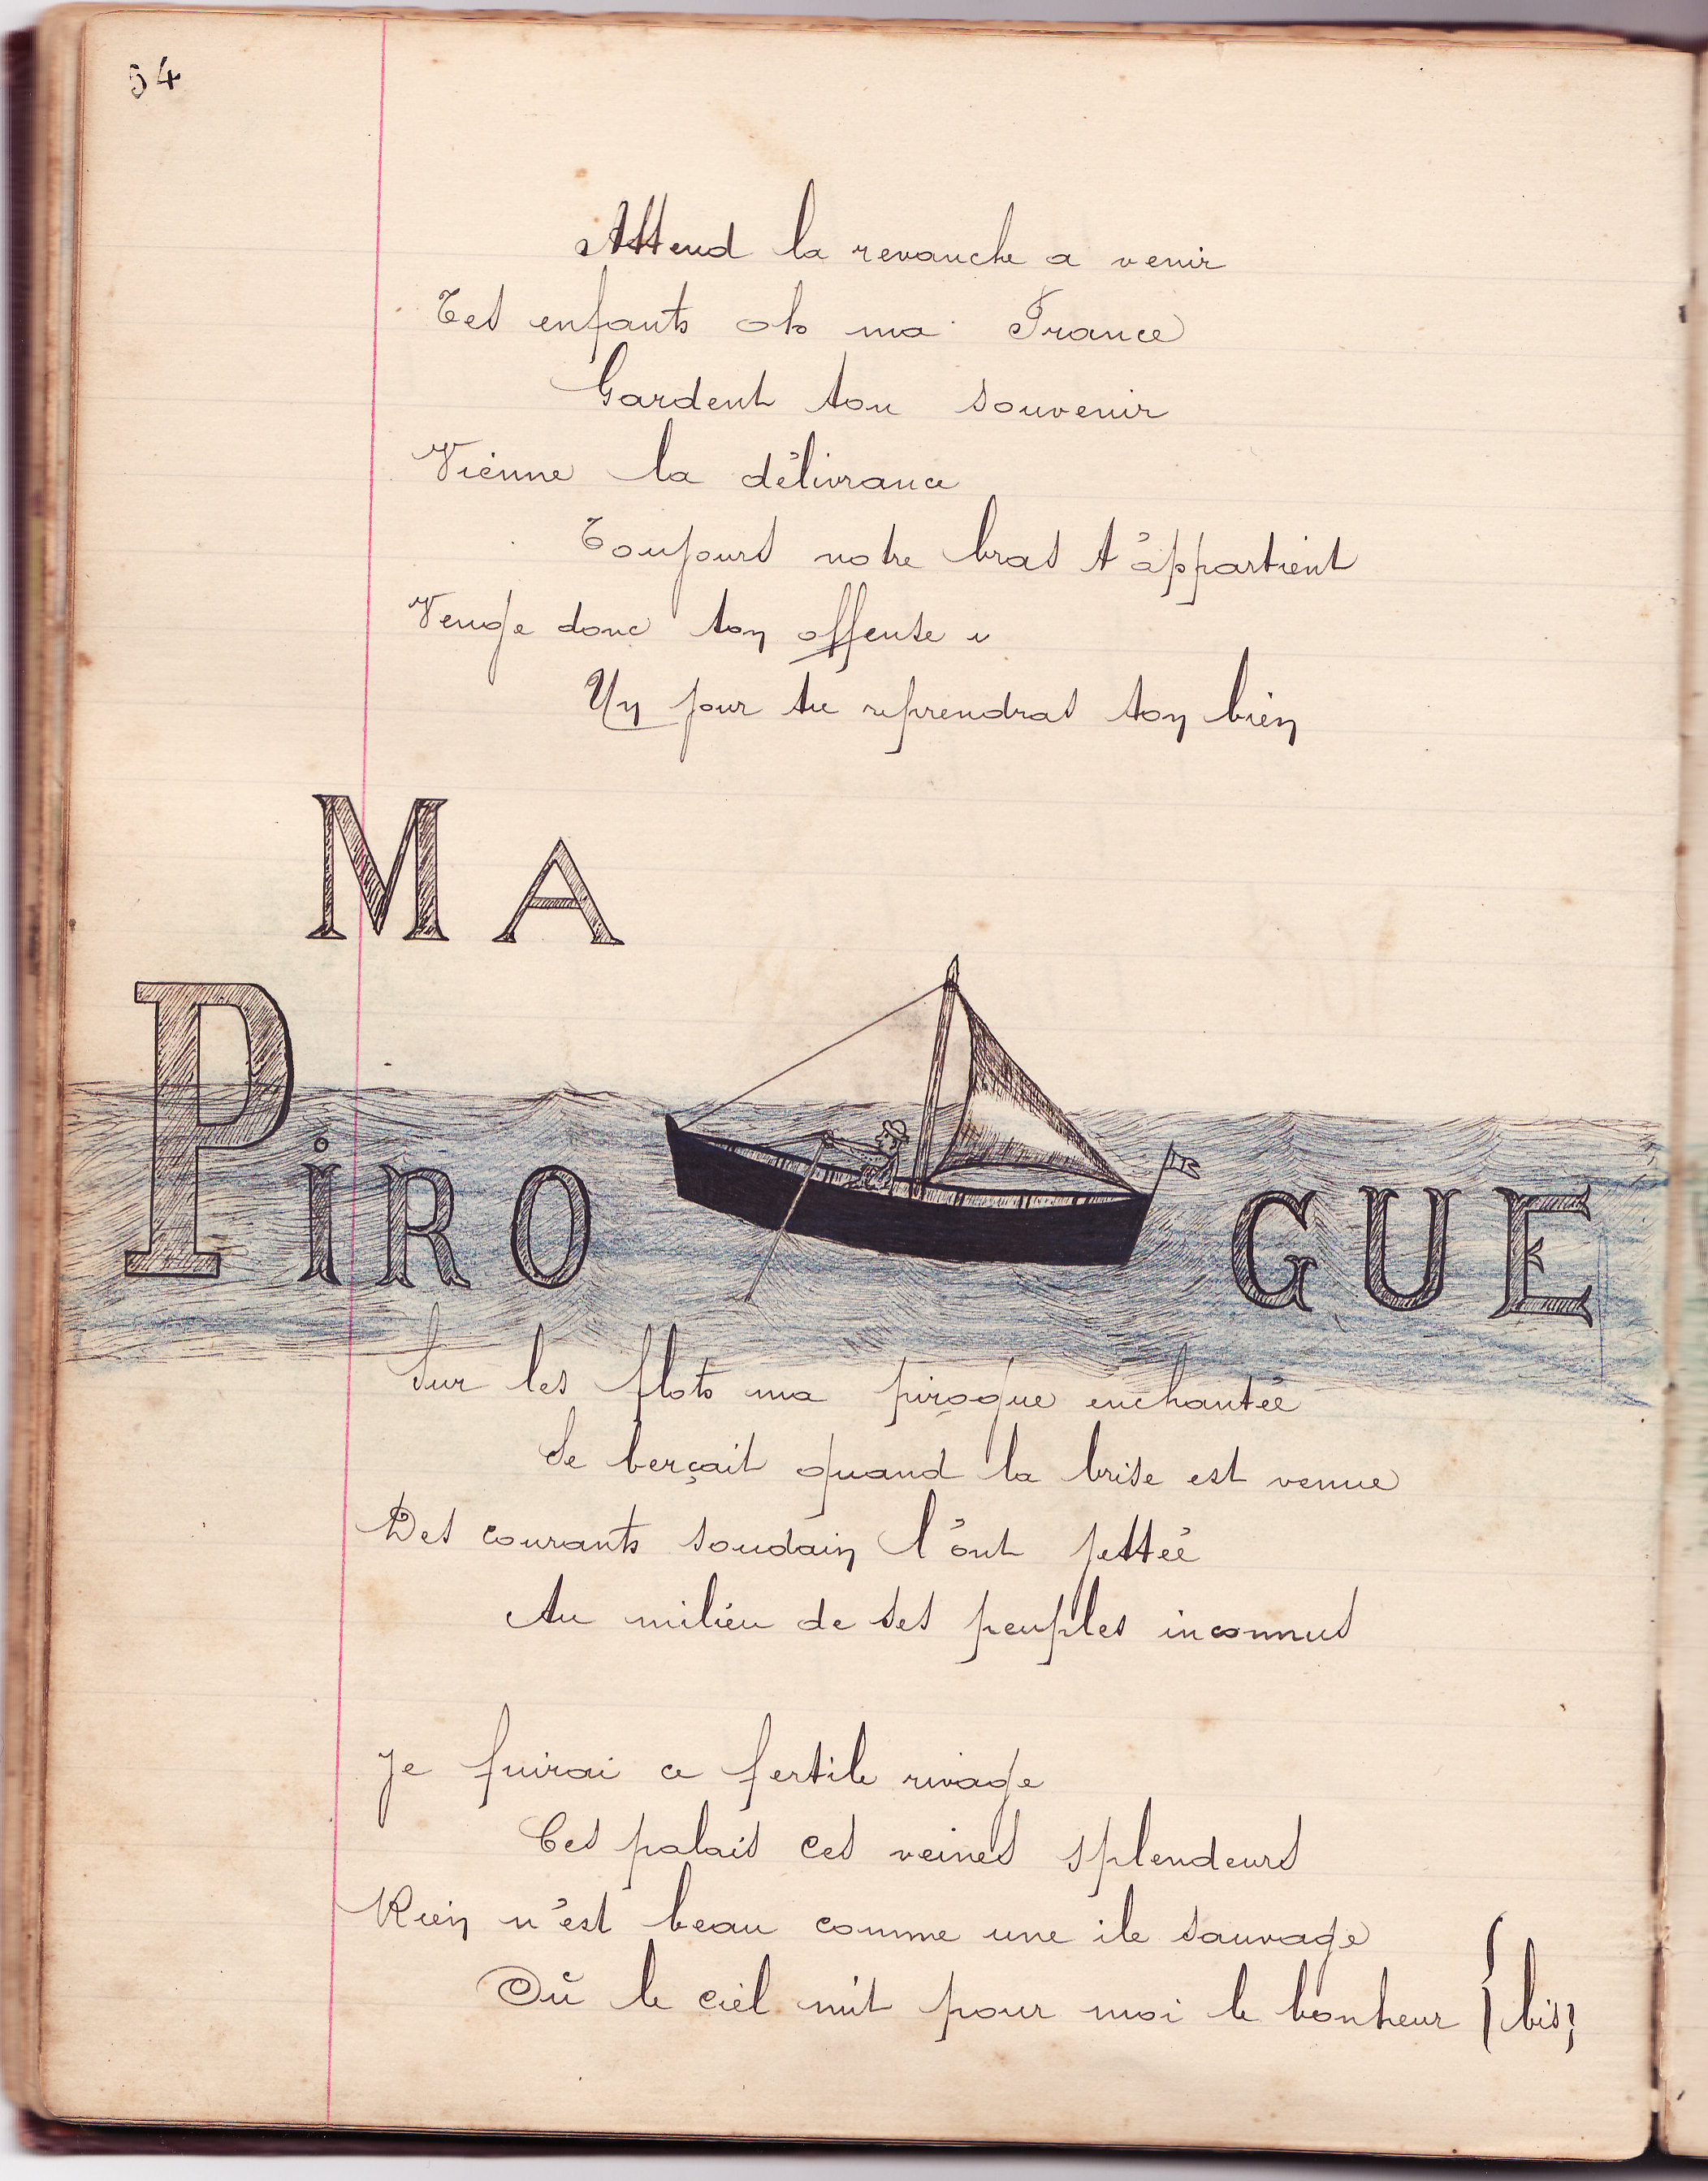 54
Attend la revanche a venir
Tes enfants oh ma France
Gardent ton souvenir
Vienne la délivrance
Toujours notre bras t'appartient
Venge donc ton offense
Un jour tu reprendras ton bien
MA
PiROGUE
Sur les flots ma pirogue enchantée
Se berçait quand la brise est venue
Des courants soudain l'ont jettée
Au milieu de ses peuples inconnus
Je fuirai ce fertile rivage
Ces palais ces veines splendeurs
Rien n'est beau comme une ile sauvage
Où le ciel mit pour moi le bonheur { bis }